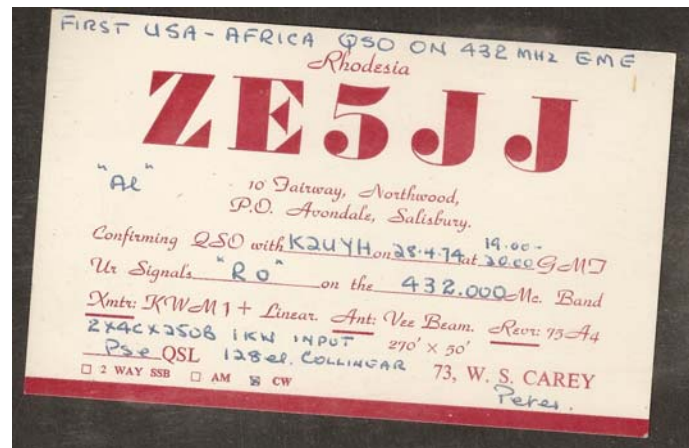 FIRST USA - AFRICA QSO ON 432 MHZ EME
Rhodesia
ZE5JJ
"Al"
10 Fairway, Northwood,
P.O. Avondale, Salisbury.
Confirming QSO with K2UYH on 28.4.74 at 19.00 - 20.00 GMT
Ur Signals "RO" on the 432.000 Mc. Band
Xmtr: KWM1 + Linear. Ant: Vee Beam. Rcvr: 75A4
2X4CX250B 1KW INPUT 270' × 50'
Pse QSL 128el. COLLINEAR 73, W. S. CAREY
☐ 2 WAY SSB ☐ AM ☒ CW Peter.